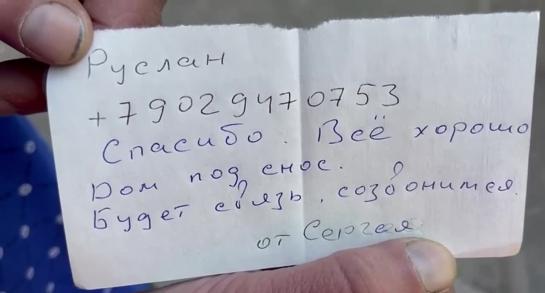 Руслан
+79029470753
Спасибо. Всё хорошо
Дом под снос.
Будет связь, созвонимся.
от Сергея